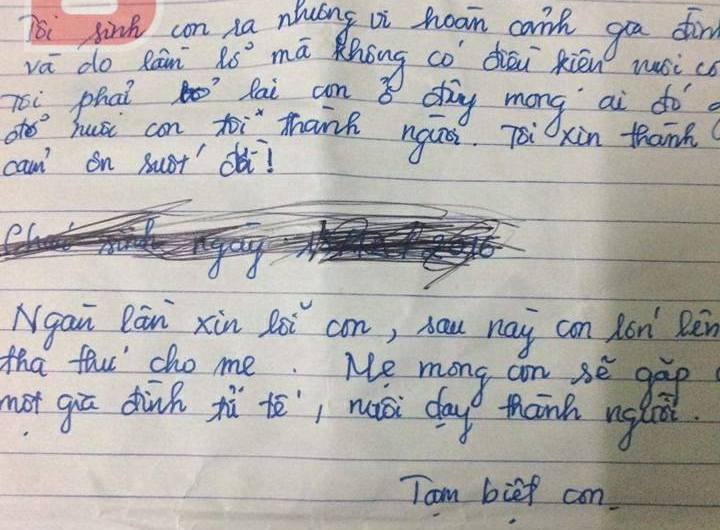 Tôi sinh con ra nhưng vì hoàn cảnh gia đình
và do lầm lỡ mà không có điều kiện nuôi co
Tôi phải bỏ lại con ở đây mong ai đó
đỡ nuôi con tôi thành người. Tôi xin thành
cảm ơn suốt đời!
sinh ngày 2016
Ngàn lần xin lỗi con, sau này con lớn lên
tha thứ cho mẹ. Mẹ mong con sẽ gặp
một gia đình tử tế, nuôi dạy thành người.
Tạm biệt con